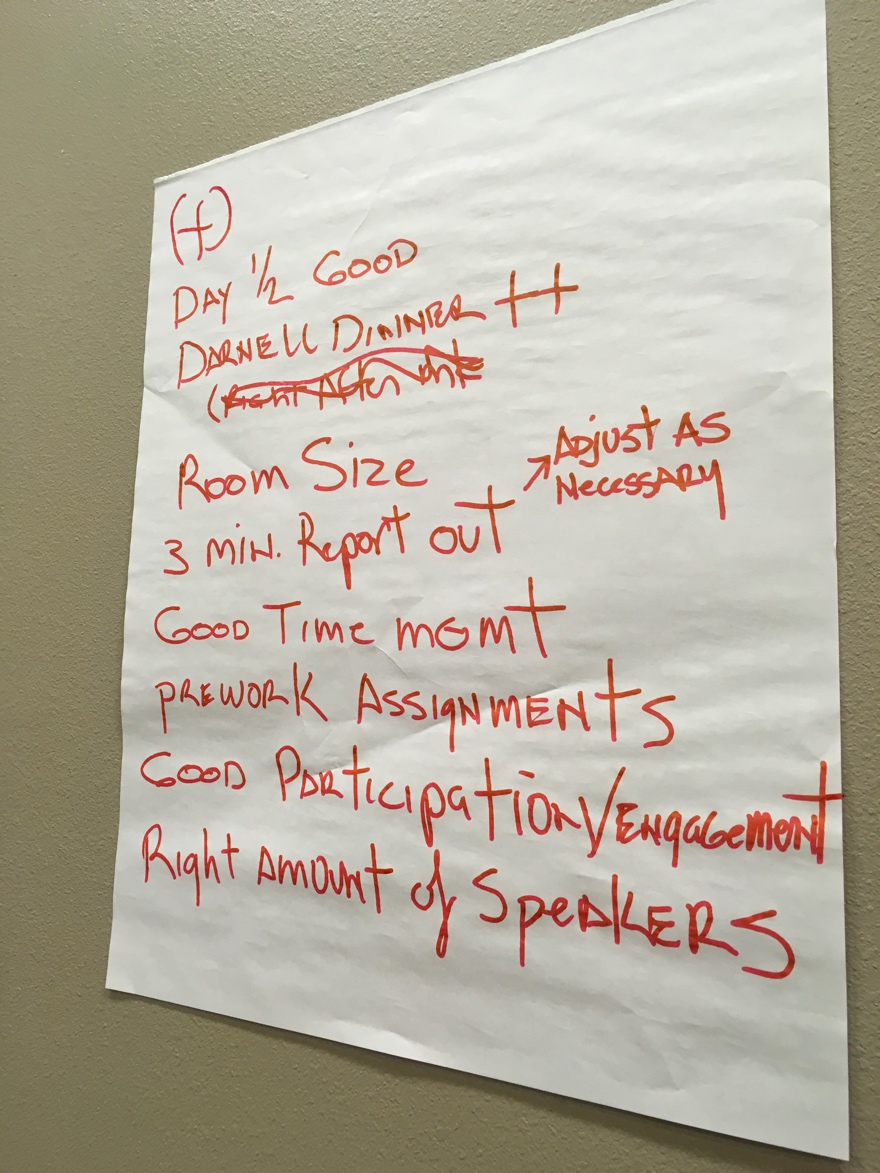 (+)
DAY 1/2 GOOD
DARNELL DINNER ++
(Right After
Room Size
3 MIN. Report out ↗ ADJUST AS
NECESSARY
GOOD TIME MGMT
PREWORK ASSIGNMENTS
GOOD PARTICIPATION/ENGAGEMENT
Right AMOUNT of SpeAKERS